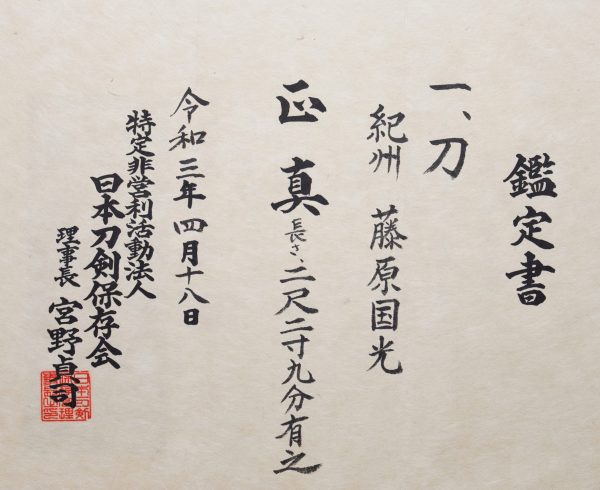 鑑定書
一、刀
紀州 藤原国光
正真
長さ、二尺二寸九分有之
令和三年四月十八日
特定非営利活動法人
日本刀剣保存会
理事長 宮野貞司